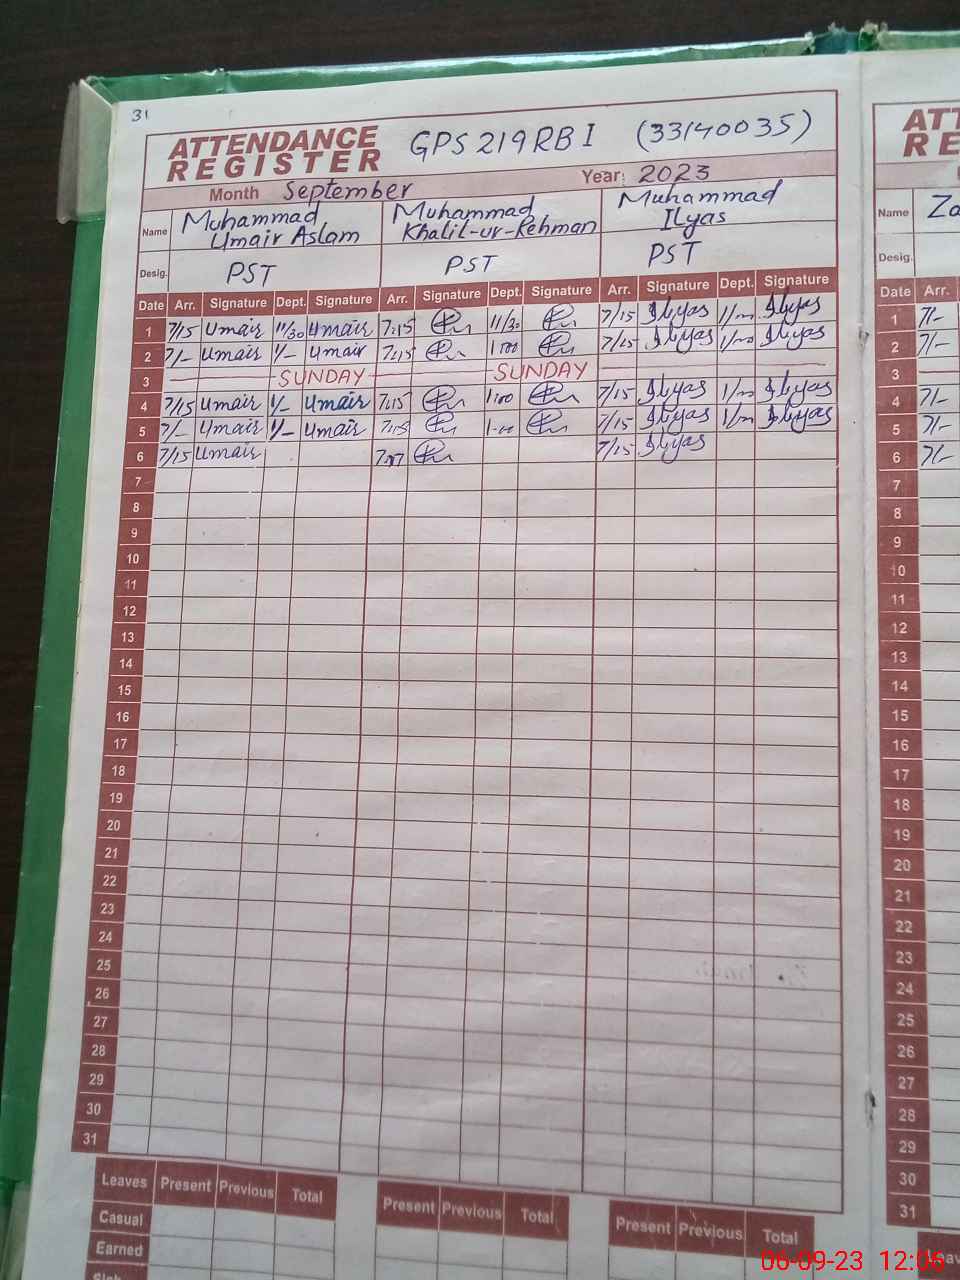 31
ATTENDANCE REGISTER GPS 219 RB I (33140035)
Month September Year: 2023
Name Muhammad Umair Aslam Muhammad Khalil-ur-Rehman Muhammad Ilyas
Desig. PST PST PST
Date Arr. Signature Dept. Signature Arr. Signature Dept. Signature Arr. Signature Dept. Signature
1 7/15 Umair 11/30 Umair 7:15 11/30 7/15 Ilyas Ilyas
2 7/- Umair 1/- Umair 7:15 7/15 Ilyas Ilyas
3 SUNDAY SUNDAY
4 7/15 Umair 1/- Umair 7:15 7/15 Ilyas Ilyas
5 7/- Umair 1/- Umair 7:15 7/15 Ilyas Ilyas
6 7/15 Umair 7/15 Ilyas
7
8
9
10
11
12
13
14
15
16
17
18
19
20
21
22
23
24
25
26
27
28
29
30
31
Leaves Present Previous Total Present Previous Total Present Previous Total
Casual
Earned
Name Za
Desig.
Date Arr.
1 7/-
2 7/-
3
4 7/-
5 7/-
6 7/-
7
8
9
10
11
12
13
14
15
16
17
18
19
20
21
22
23
24
25
26
27
28
29
30
31
06-09-23 12:06